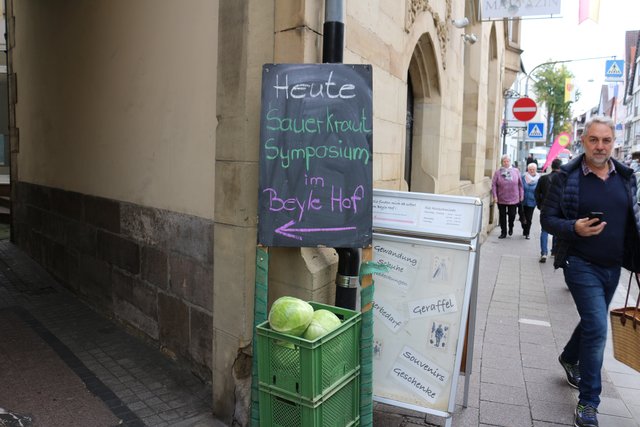 MAGAZIN
Heute
Sauerkraut
Symposium
im
Beyle Hof
Gewandung
Schuhe
Geraffel
Souvenirs
Geschenke